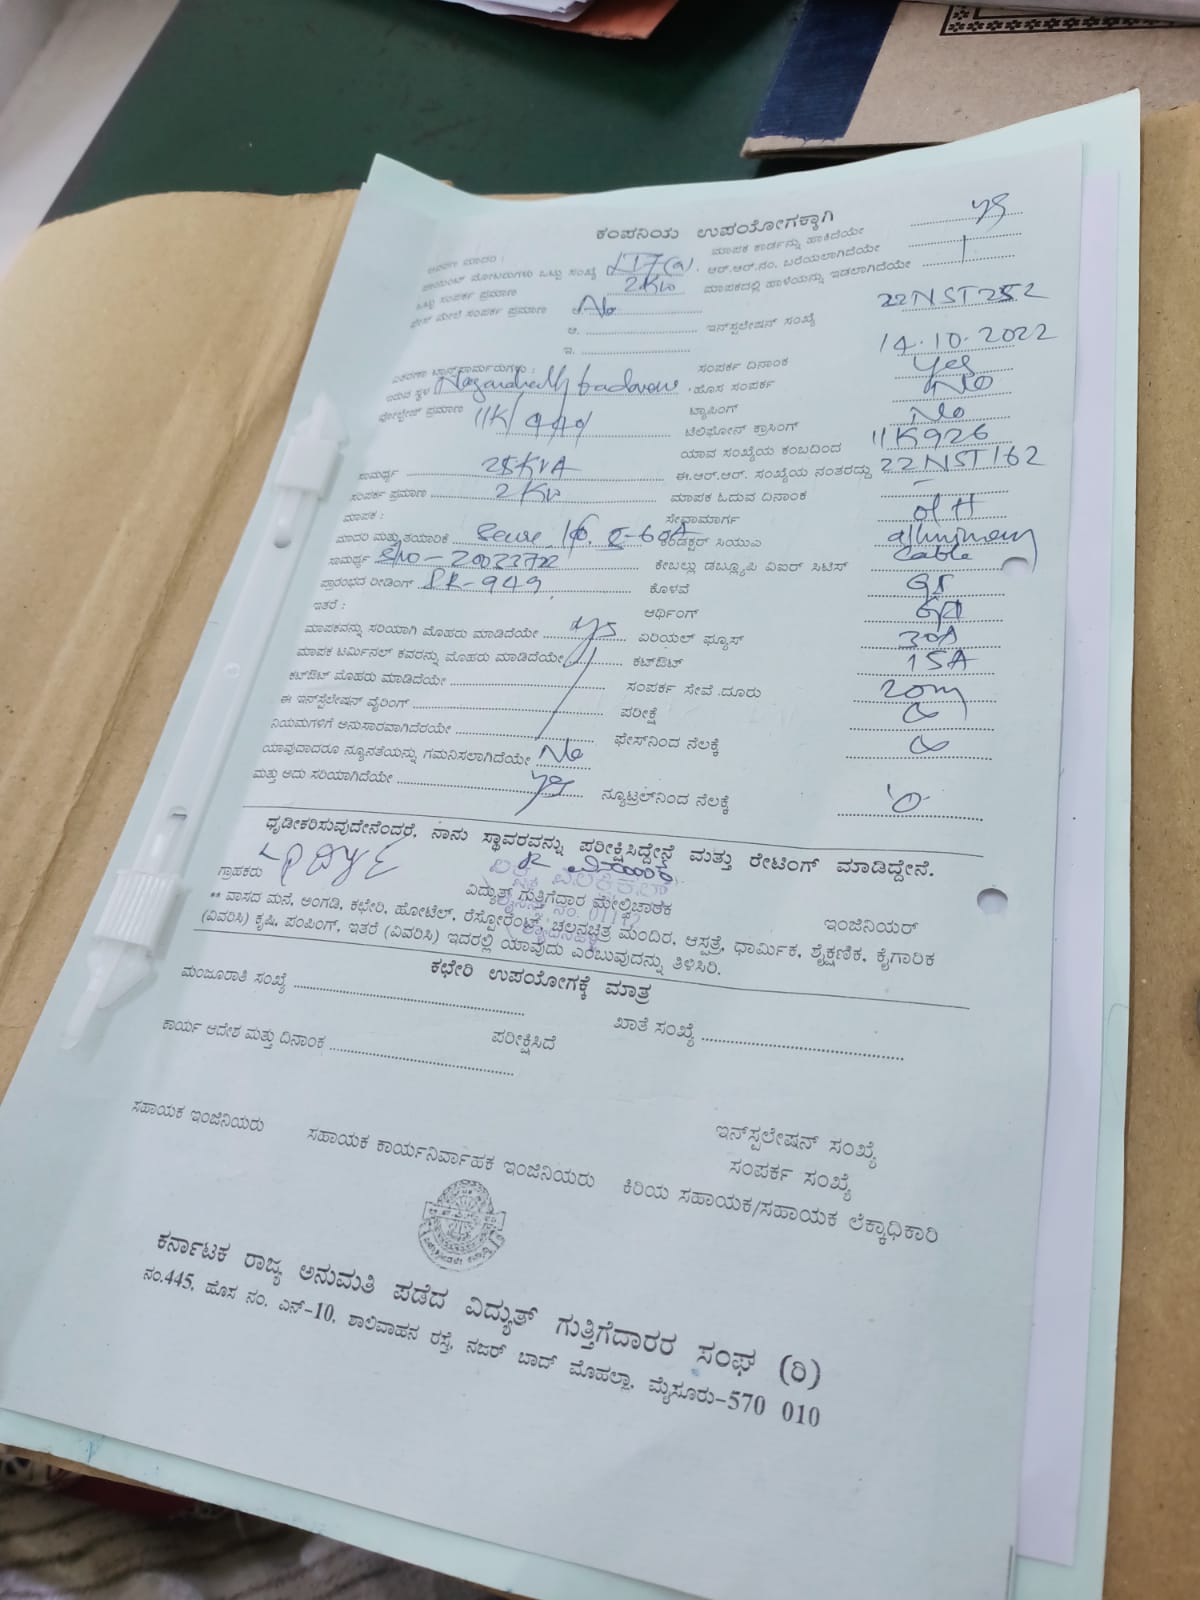 ಕಂಪನಿಯ ಉಪಯೋಗಕ್ಕಾಗಿ
ಮಾಪಕ ಕಾರ್ಡನ್ನು ಹಾಕಿದೆಯೇ
ಪಾಯಿಂಟ್ ಮೋಟರುಗಳು ಒಟ್ಟು ಸಂಖ್ಯೆ LT7(a) ಆರ್.ಆರ್.ನಂ. ಬರೆಯಲಾಗಿದೆಯೇ
ಒಟ್ಟು ಸಂಪರ್ಕ ಪ್ರಮಾಣ 2Kw ಮಾಪಕದಲ್ಲಿ ಹಾಳೆಯನ್ನು ಇಡಲಾಗಿದೆಯೇ
ಫೇಸ್ ಮೇಲೆ ಸಂಪರ್ಕ ಪ್ರಮಾಣ No
ಆ. ಇನ್‌ಸ್ಟಲೇಷನ್ ಸಂಖ್ಯೆ 22NST252
ಇ.
ಸಂಪರ್ಕ ದಿನಾಂಕ 14.10.2022
ಇರುವ ಸ್ಥಳ ಹೊಸ ಸಂಪರ್ಕ Yes
ವೋಲ್ಟೇಜ್ ಪ್ರಮಾಣ 11K/440 ಟ್ಯಾಪಿಂಗ್ No
ಟೆಲಿಫೋನ್ ಕ್ರಾಸಿಂಗ್ No
ಯಾವ ಸಂಖ್ಯೆಯ ಕಂಬದಿಂದ 11K926
ಸಾಮರ್ಥ್ಯ 25KVA ಈ.ಆರ್.ಆರ್. ಸಂಖ್ಯೆಯ ನಂತರದ್ದು 22NST162
ಸಂಪರ್ಕ ಪ್ರಮಾಣ 2Kw ಮಾಪಕ ಓದುವ ದಿನಾಂಕ -
ಮಾಪಕ : ಸೇವಾಮಾರ್ಗ OH
ಮಾದರಿ ಮತ್ತು ತಯಾರಿಕೆ ಕಂಡಕ್ಟರ್ ಸಿಯುಎ
ಸಾಮರ್ಥ್ಯ ಕೇಬಲ್ಲು ಡಬ್ಲ್ಯೂಪಿ ವಿಐರ್ ಸಿಟಿಸ್ Cable
ಪ್ರಾರಂಭದ ರೀಡಿಂಗ್ ಕೊಳವೆ
ಇತರೆ : ಆರ್ಥಿಂಗ್
ಮಾಪಕವನ್ನು ಸರಿಯಾಗಿ ಮೊಹರು ಮಾಡಿದೆಯೇ ಏರಿಯಲ್ ಫ್ಯೂಸ್ 30A
ಮಾಪಕ ಟರ್ಮಿನಲ್ ಕವರನ್ನು ಮೊಹರು ಮಾಡಿದೆಯೇ ಕಟ್‌ಔಟ್ 15A
ಕಟ್‌ಔಟ್ ಮೊಹರು ಮಾಡಿದೆಯೇ ಸಂಪರ್ಕ ಸೇವೆ ದೂರು 20m
ಈ ಇನ್‌ಸ್ಟಲೇಷನ್ ವೈರಿಂಗ್ ಪರೀಕ್ಷೆ
ನಿಯಮಗಳಿಗೆ ಅನುಸಾರವಾಗಿದೆರಯೇ ಫೇಸ್‌ನಿಂದ ನೆಲಕ್ಕೆ
ಯಾವುದಾದರೂ ನ್ಯೂನತೆಯನ್ನು ಗಮನಿಸಲಾಗಿದೆಯೇ No
ಮತ್ತು ಅದು ಸರಿಯಾಗಿದೆಯೇ ನ್ಯೂಟ್ರಲ್‌ನಿಂದ ನೆಲಕ್ಕೆ 'O'
ಧೃಡೀಕರಿಸುವುದೇನೆಂದರೆ, ನಾನು ಸ್ಥಾವರವನ್ನು ಪರೀಕ್ಷಿಸಿದ್ದೇನೆ ಮತ್ತು ರೇಟಿಂಗ್ ಮಾಡಿದ್ದೇನೆ.
ಗ್ರಾಹಕರು ವಿದ್ಯುತ್ ಗುತ್ತಿಗೆದಾರ ಮೇಲ್ವಿಚಾರಕ ಇಂಜಿನಿಯರ್
** ವಾಸದ ಮನೆ, ಅಂಗಡಿ, ಕಛೇರಿ, ಹೋಟೆಲ್, ರೆಸ್ಟೋರೆಂಟ್, ಚಲನಚಿತ್ರ ಮಂದಿರ, ಆಸ್ಪತ್ರೆ, ಧಾರ್ಮಿಕ, ಶೈಕ್ಷಣಿಕ, ಕೈಗಾರಿಕ
(ವಿವರಿಸಿ) ಕೃಷಿ, ಪಂಪಿಂಗ್, ಇತರೆ (ವಿವರಿಸಿ) ಇದರಲ್ಲಿ ಯಾವುದು ಎಂಬುವುದನ್ನು ತಿಳಿಸಿರಿ.
ಕಛೇರಿ ಉಪಯೋಗಕ್ಕೆ ಮಾತ್ರ
ಮಂಜೂರಾತಿ ಸಂಖ್ಯೆ ಖಾತೆ ಸಂಖ್ಯೆ
ಕಾರ್ಯ ಆದೇಶ ಮತ್ತು ದಿನಾಂಕ ಪರೀಕ್ಷಿಸಿದೆ
ಇನ್‌ಸ್ಟಲೇಷನ್ ಸಂಖ್ಯೆ
ಸಂಪರ್ಕ ಸಂಖ್ಯೆ
ಸಹಾಯಕ ಇಂಜಿನಿಯರು ಸಹಾಯಕ ಕಾರ್ಯನಿರ್ವಾಹಕ ಇಂಜಿನಿಯರು ಕಿರಿಯ ಸಹಾಯಕ/ಸಹಾಯಕ ಲೆಕ್ಕಾಧಿಕಾರಿ
ಕರ್ನಾಟಕ ರಾಜ್ಯ ಅನುಮತಿ ಪಡೆದ ವಿದ್ಯುತ್ ಗುತ್ತಿಗೆದಾರರ ಸಂಘ (ರಿ)
ನಂ.445, ಹೊಸ ನಂ. ಎನ್-10, ಶಾಲಿವಾಹನ ರಸ್ತೆ, ನಜರ್ ಬಾದ್ ಮೊಹಲ್ಲಾ, ಮೈಸೂರು-570 010